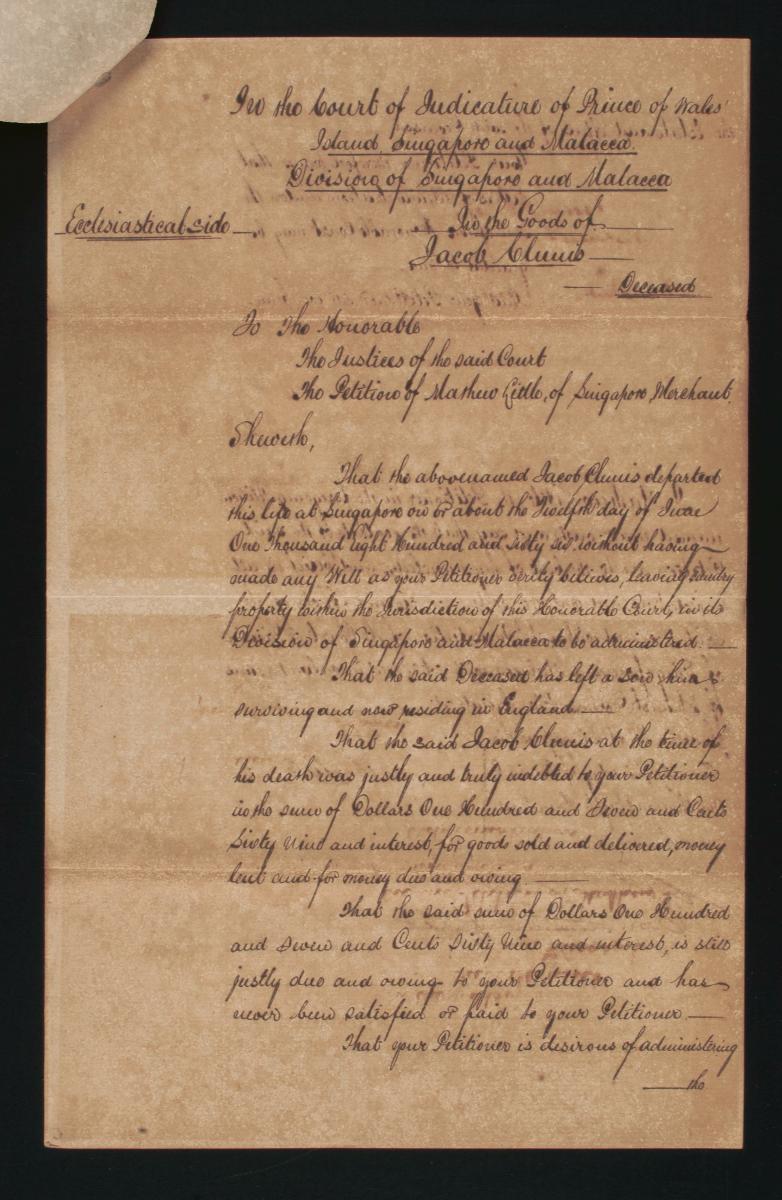 In the Court of Judicature of Prince of Wales'
Island, Singapore and Malacca.
Division of Singapore and Malacca
Ecclesiastical side
In the Goods of
Jacob Clunis
Deceased
To The Honorable
The Justices of the said Court
The Petition of Mathew Little, of Singapore, Merchant.
Sheweth,
That the abovenamed Jacob Clunis departed
this life at Singapore on or about the Twelfth day of June
One Thousand Eight Hundred and sixty six without having
made any Will as your Petitioner verily believes, leaving sundry
property within the Jurisdiction of this Honorable Court, in its
Division of Singapore and Malacca to be administered.
That the said Deceased has left a son him
surviving and now residing in England
That the said Jacob Clunis at the time of
his death was justly and truly indebted to your Petitioner
in the sum of Dollars One Hundred and Seven and Cents
Sixty Nine and interest, for goods sold and delivered, money
lent and for money due and owing
That the said sum of Dollars One Hundred
and Seven and Cents Sixty Nine and interest, is still
justly due and owing to your Petitioner and has
never been satisfied or paid to your Petitioner
That your Petitioner is desirous of administering
the